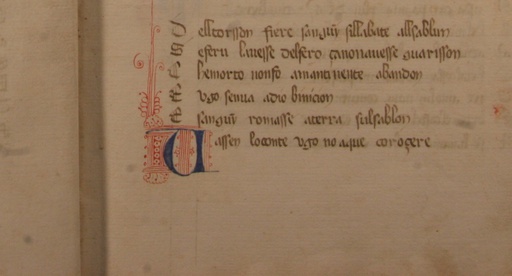 D elltorsson fiere sanguȳ sillabate allsablun
E eseru lauesse delsero canonauesse guarisson
S hemorto nonso amantinente abandon
E Vgo senua adio binicion
E sanguȳ romasse aterra sulsablon
U assen loconte vgo no aque corogere